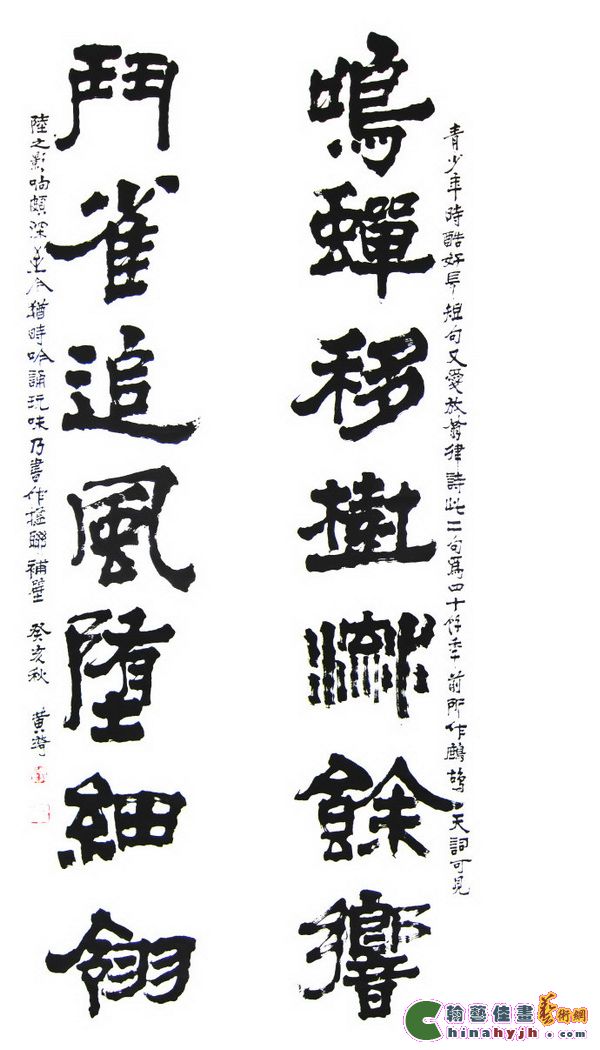 青少年時酷好長短句又愛放翁律詩此二句爲四十餘年前所作鷓鴣天詞可見
鳴蟬移樹餘響
鬥雀追風墮細翎
陸之影响頗深至今猶時吟誦玩味乃書作楹聯補壁 癸亥秋 黃綺
翰藝佳畫藝術網
Chinahyjh.com